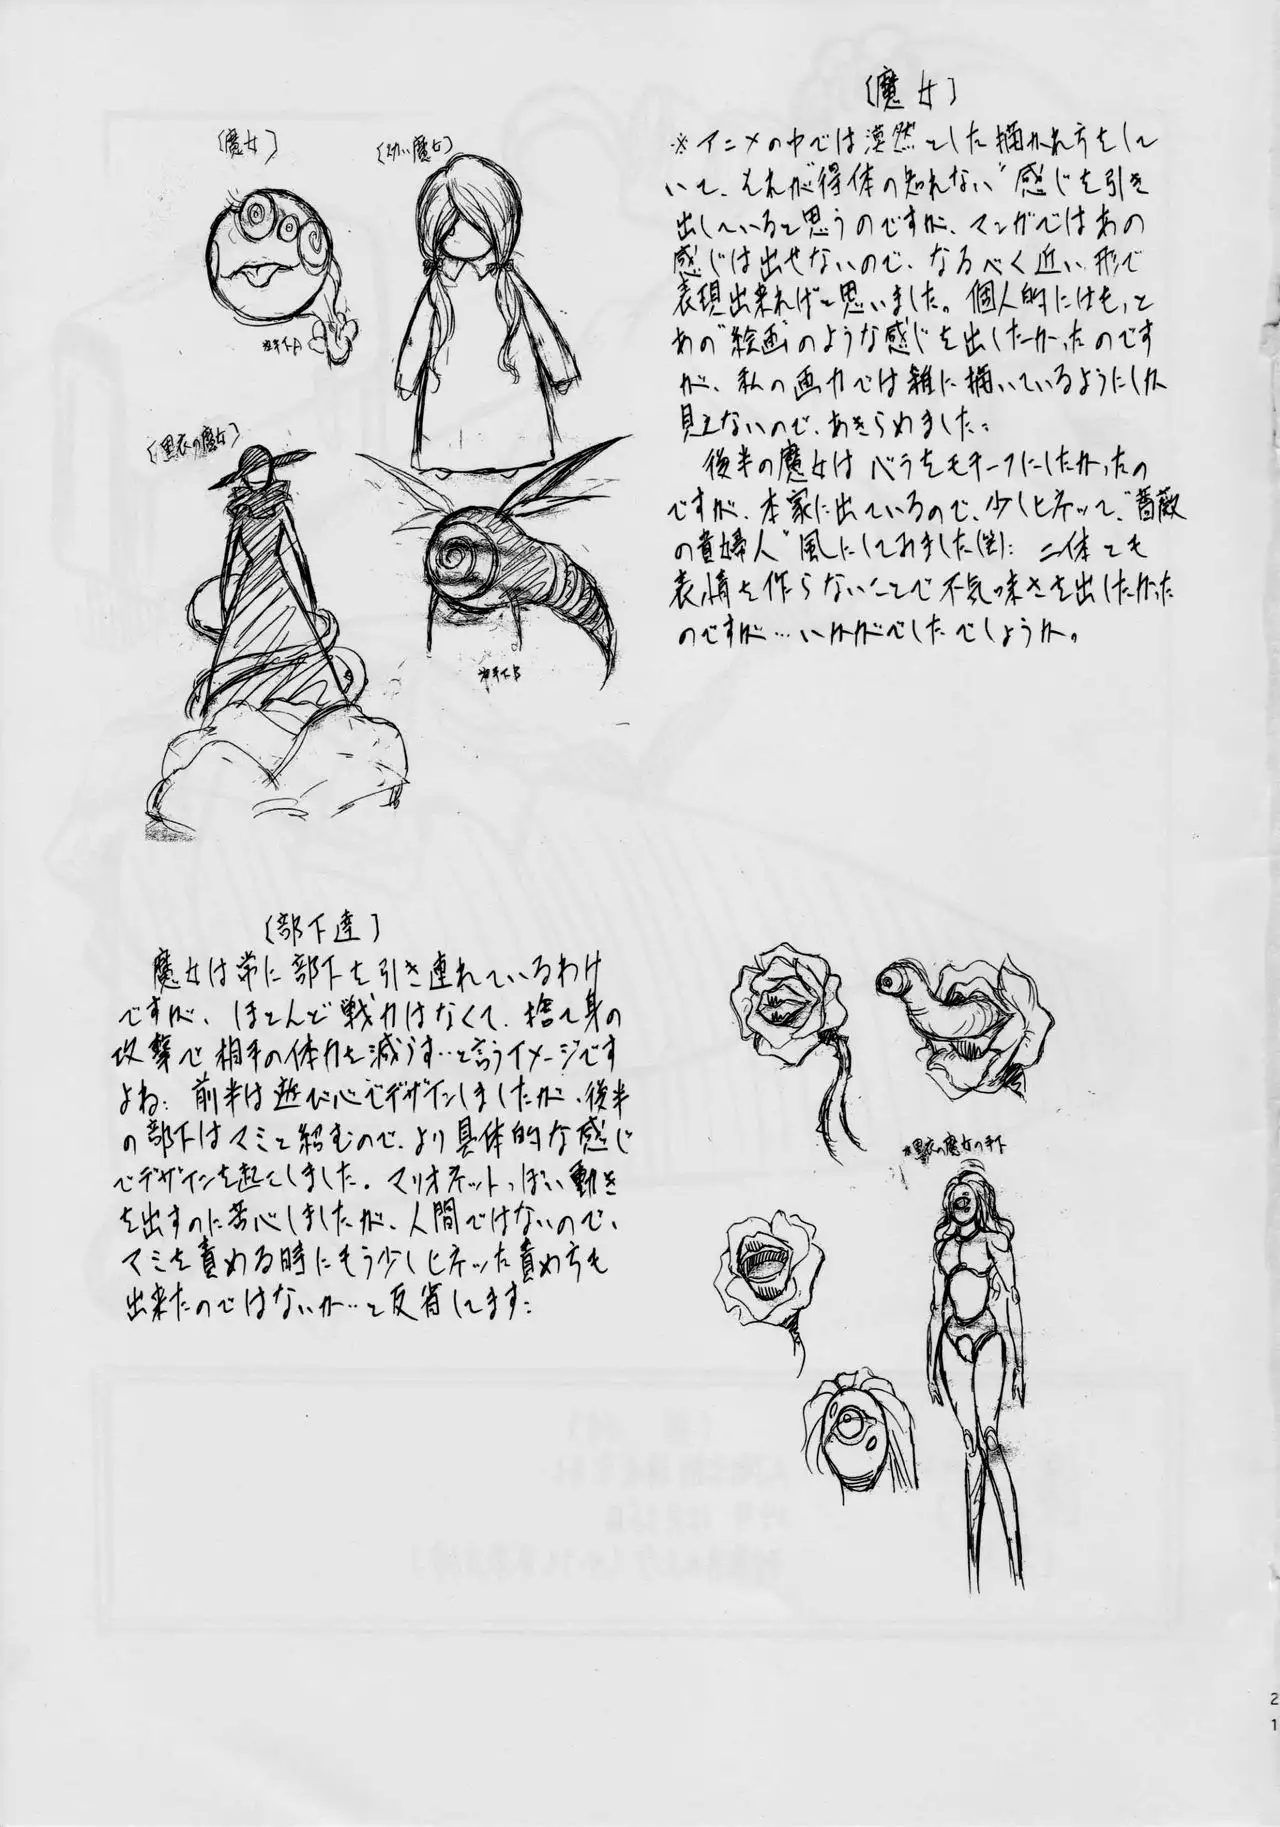 〔魔女〕
※アニメの中では漠然とした描かれ方をして
いて、それが得体の知れない"感じを引き
出していると思うのですが、マンガではあの
感じは出せないので、なるべく近い形で
表現出来ればと思いました。個人的にはもっと
あの"絵画"のような感じを出したかったのです
が、私の画力では雑に描いているようにしか
見えないので、あきらめました。
後半の魔女はベラをモチーフにしたかったの
ですが、本家に出ているので、少しヒネって、"薔薇
の貴婦人"風にしてみました(笑)。二体とも
表情を作らないことで不気味さを出したかった
のですが…いかがでしたでしょうか。
〔魔女〕
〔幼い魔女〕
〔黒衣の魔女〕
〔部下達〕
魔女は常に部下を引き連れているわけ
ですが、ほとんど戦力はなくて、捨て身の
攻撃で相手の体力を減らす…と言うイメージです
よね。前半は遊び心でデザインしましたが、後半
の部下はマミと絡むので、より具体的な感じ
でデザインを起こしました。マリオネットっぽい動き
を出すのに苦心しましたが、人間ではないので、
マミを責める時にもう少しヒネった責め方も
出来たのではないか…と反省してます。
※黒衣の魔女の手下
21